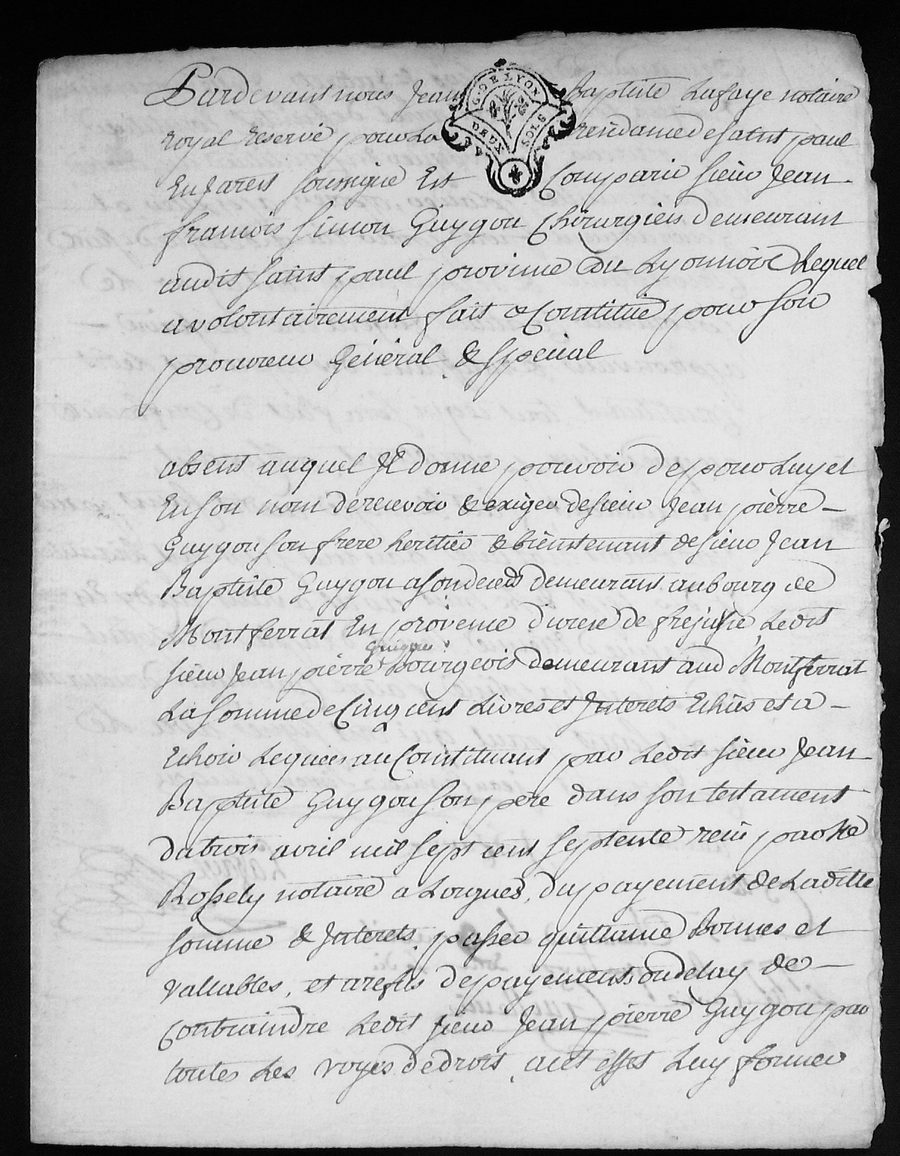 Pardevant nous Jean Baptiste Lafaye notaire
G. DE LYON
DEUX SOLS
royal reservé pour La rendame de saint paul
En Jarest soussigné Est Comparu sieur Jean
francois simon Guygou Chirurgien demeurant
audit saint paul province du Lyonnois Lequel
a volontairement fait & Constitué pour son
procureur Général & special
absent auquel Jl donne pouvoir de pour Luy et
En son nom de recevoir & exiger de sieur Jean pierre
Guygou son frere heritier & bientenant de sieur Jean
Baptiste Guygou a son deceds demeurant au bourg de
Montferrat En provence diocese de frejus, Ledit
sieur Jean pierre Guigou Bourgeois demeurant aud Montferrat
La somme de Cinq cent Livres et Jnterets Echus et a
Echoir Leguées au Constituant par Ledit sieur Jean
Baptiste Guygou son pere dans son testament
du trois avril mil sept cent septente reçu par Me
Rossely notaire a Lorgues, du payement de Ladite
somme & Jnterets passer quittance Bonnes et
vallables, et a refus de payement ou delay de
Contraindre Ledit sieur Jean pierre Guygou par
toutes Les voyes de droit, a cet effet Luy former